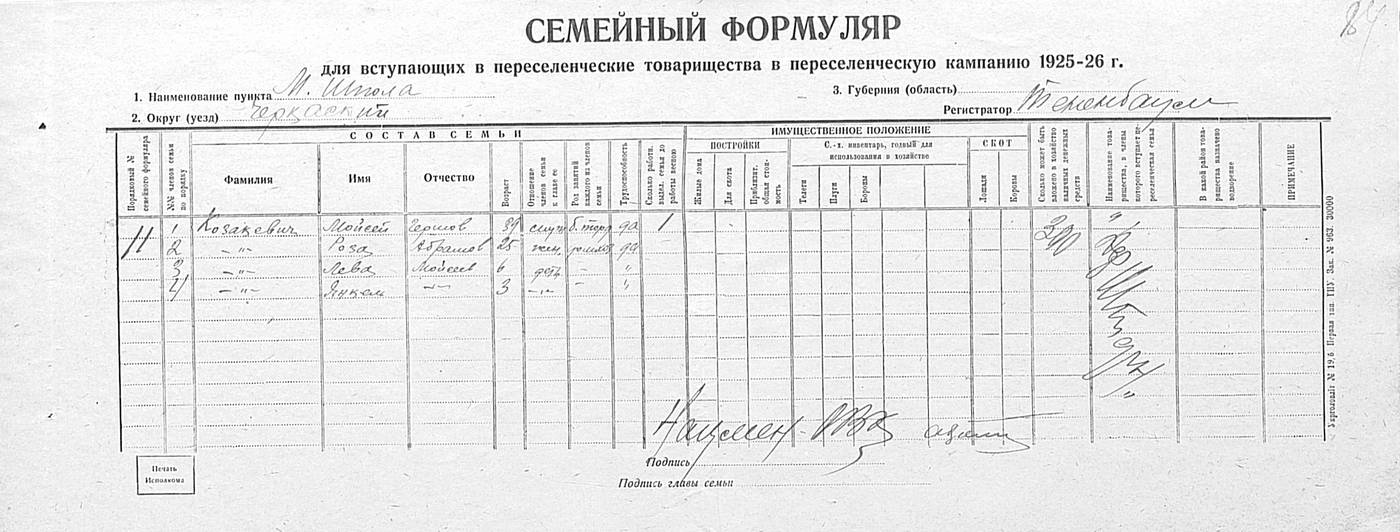 84
СЕМЕЙНЫЙ ФОРМУЛЯР
для вступающих в переселенческие товарищества в переселенческую кампанию 1925-26 г.
1. Наименование пункта М. Шпола
3. Губерния (область)
2. Округ (уезд) Черкаский
Регистратор Тененбаум
СОСТАВ СЕМЬИ
ИМУЩЕСТВЕННОЕ ПОЛОЖЕНИЕ
ПОСТРОЙКИ
С.-х. инвентарь, годный для использования в хозяйстве
СКОТ
Порядковый № семейного формуляра
№№ членов семьи по порядку
Фамилия
Имя
Отчество
Возраст
Отношение членов семьи к главе ее
Род занятий каждого из членов семьи
Трудоспособность
Сколько работн. выдел. семья до работы весною
Жилые дома
Для скота
Приблизит. общая стоимость
Телеги
Плуги
Бороны
Лошади
Коровы
Сколько может быть вложено в хозяйство наличных денежных средств
Наименование товарищества, в члены которого вступает переселенческая семья
В какой район товарищества назначено водворение
ПРИМЕЧАНИЕ
11
1 Козакевич Мойсей Гершов 39 б. торг да 1 300
2 -"- Роза Абрамов 25 жен. да
3 -"- Лева Мойсеев 6 дети - "
4 -"- Янкель -"- 3 -"- - "
Нацмен
Подпись
Подпись главы семьи
Печать
Исполкома
Укрголовліт № 19,6. Первая тип. ГПУ. Зак. № 963. 30000